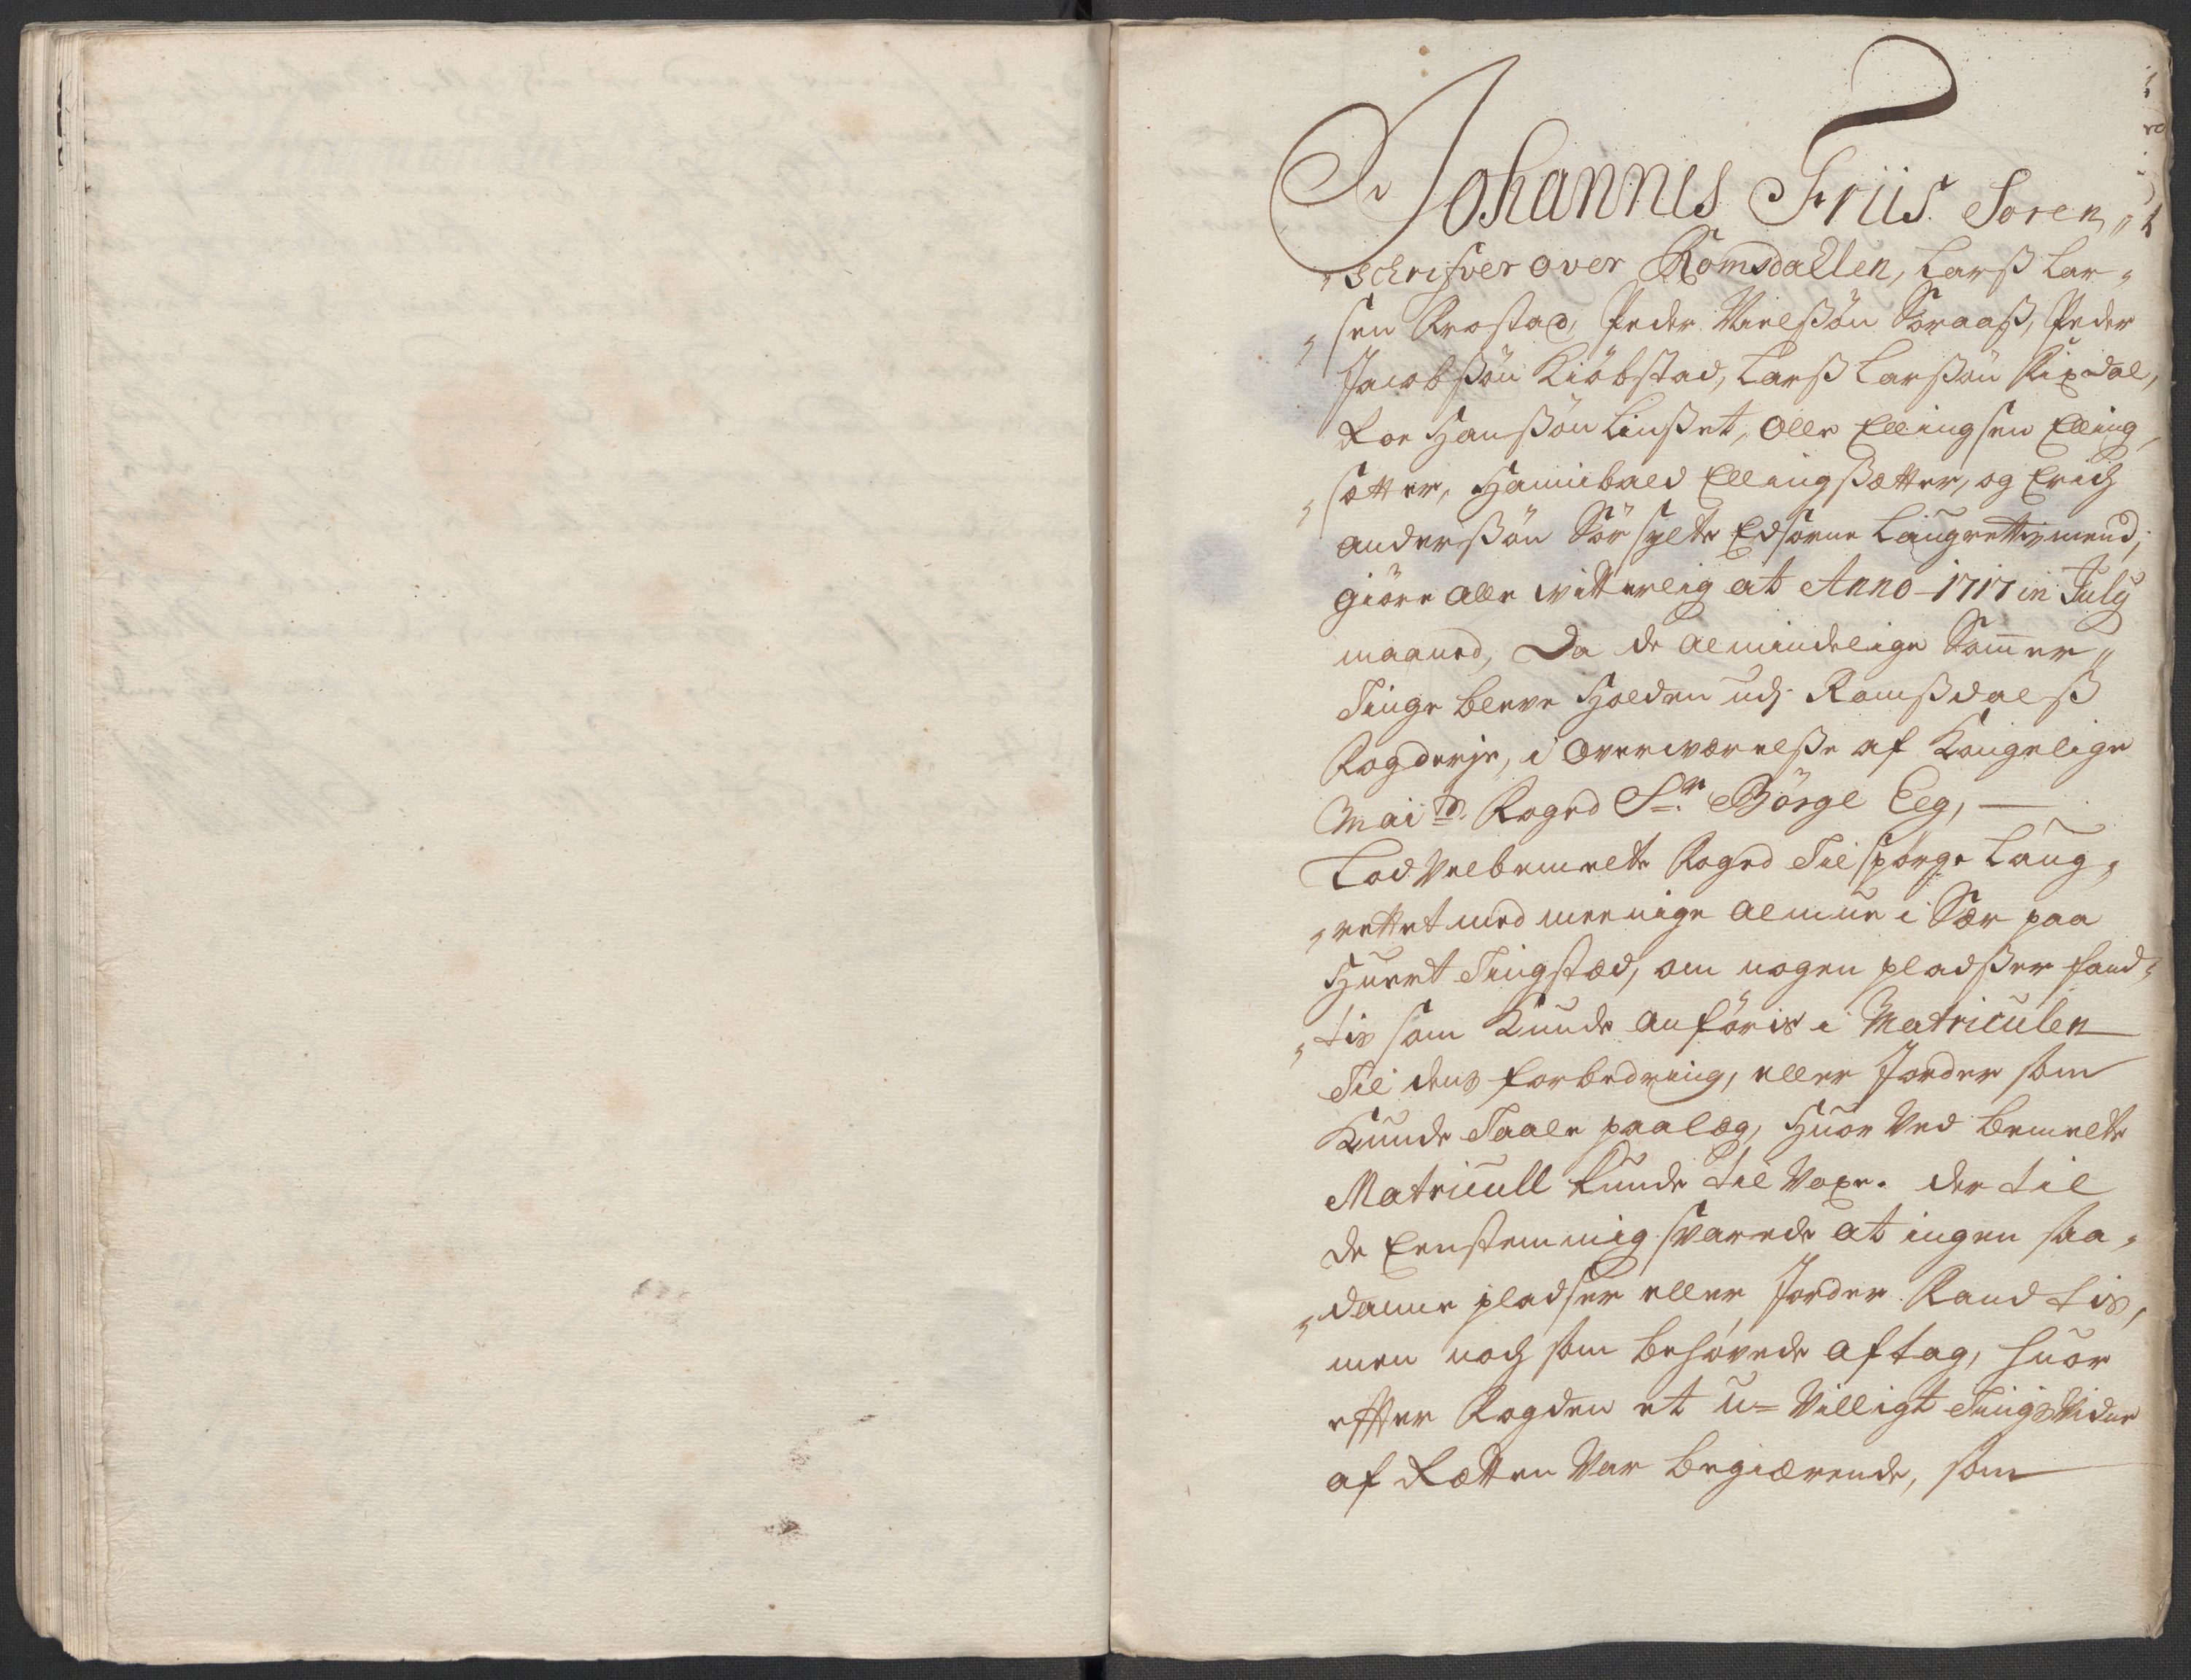 Johannes Friis Soren„
„schrifver over Romsdallen, Larß Lar„
„sen Frostad, Peder Nielßøn Soraaß, Peder
Jacobßøn Kiöbstad, Larß Larßøn Rixdal,
Roe Hanßøn Linßet, Olle Ellingsen Elling„
„sætter, Hannibald Ellingßætter, og Erich
Anderßøn Sör sylte Edsorne Laugrettismend,
Giöre Alle witterlig at Anno 1717 in July
maaned, Da de Almindelige Som̄er„
Tinge bleve Holden udj Romßdalß
Fogderje, i Overværelße af Kongelige
Mai:ts Foged Sr. Börge Eeg, —
Lod Velbemelte Foged Tilspørge Laug„
„rettet med meenige Almue i Sær paa
Huert Tingstæd, om nogen pladßer fand„
„tis som Kunde Anføris i Matriculen
Til dens forbedring, eller Jorder som
Kunde Taale paalæg, Huor Ved bemelte
Matricull Kunde til Voxe. der til
de Eenstemmig svarede at ingen saa„
„danne pladser eller Jorder Fandtis,
men noch som behøvede Aftag, huor
effter Fogden et u-Villigt Tingsvidne
af Rætten Var begiærende, som